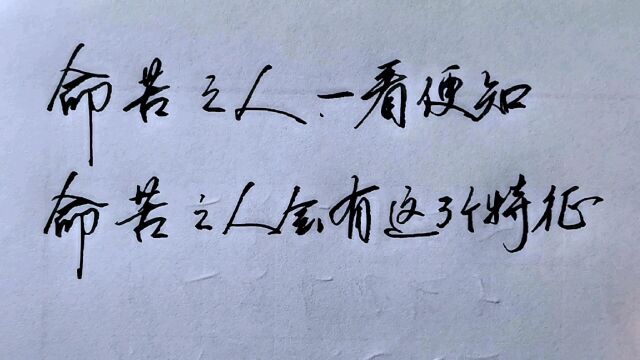 命苦之人、一看便知
命苦之人会有这3个特征